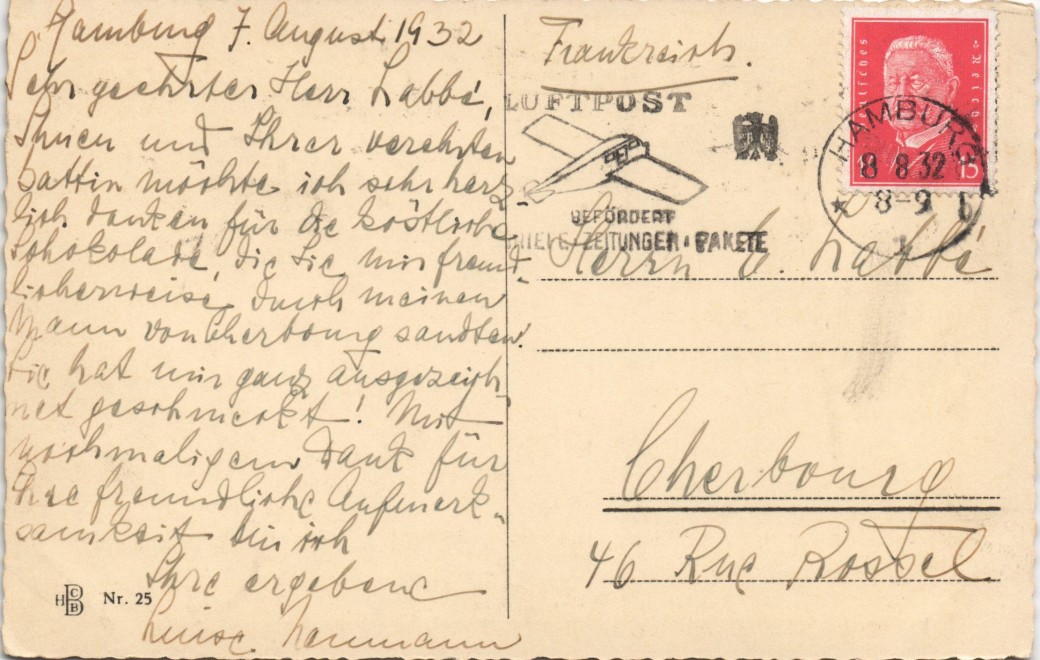 Hamburg 7. August 1932
Sehr geehrter Herr Labbé,
Ihnen und Ihrer verehrten
Gattin möchte ich sehr herz-
lich danken für die köstliche
Schokolade, die Sie mir freund-
licherweise durch meinen
Mann von Cherbourg sandten.
Sie hat mir ganz ausgezeich-
net geschmeckt! Mit
nochmaligem Dank für
Ihre freundliche Aufmerk-
samkeit bin ich
Ihre ergebene
Luise Naumann
HCBB Nr. 25
Frankreich.
LUFTPOST
BEFÖRDERT
BRIEFE·ZEITUNGEN·PAKETE
Deutsches Reich
15 15
HAMBURG
8 8.32
8-9
1
Herrn C. Labbé
Cherbourg
46 Rue Rossel